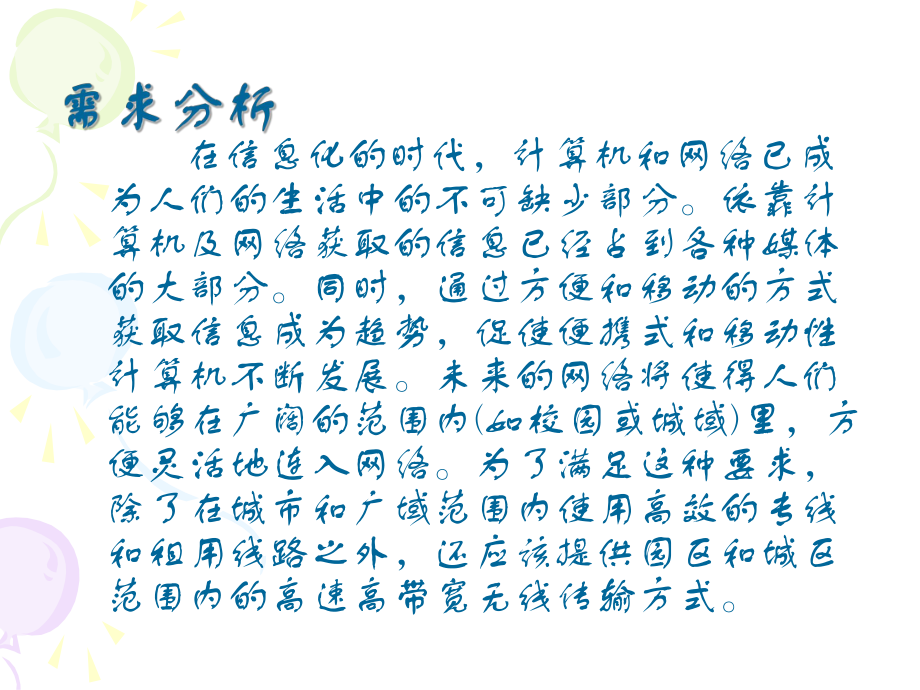 需求分析
在信息化的时代，计算机和网络已成
为人们的生活中的不可缺少部分。依靠计
算机及网络获取的信息已经占到各种媒体
的大部分。同时，通过方便和移动的方式
获取信息成为趋势，促使便携式和移动性
计算机不断发展。未来的网络将使得人们
能够在广阔的范围内(如校园或城域)里，方
便灵活地连入网络。为了满足这种要求，
除了在城市和广域范围内使用高效的专线
和租用线路之外，还应该提供园区和城区
范围内的高速高带宽无线传输方式。